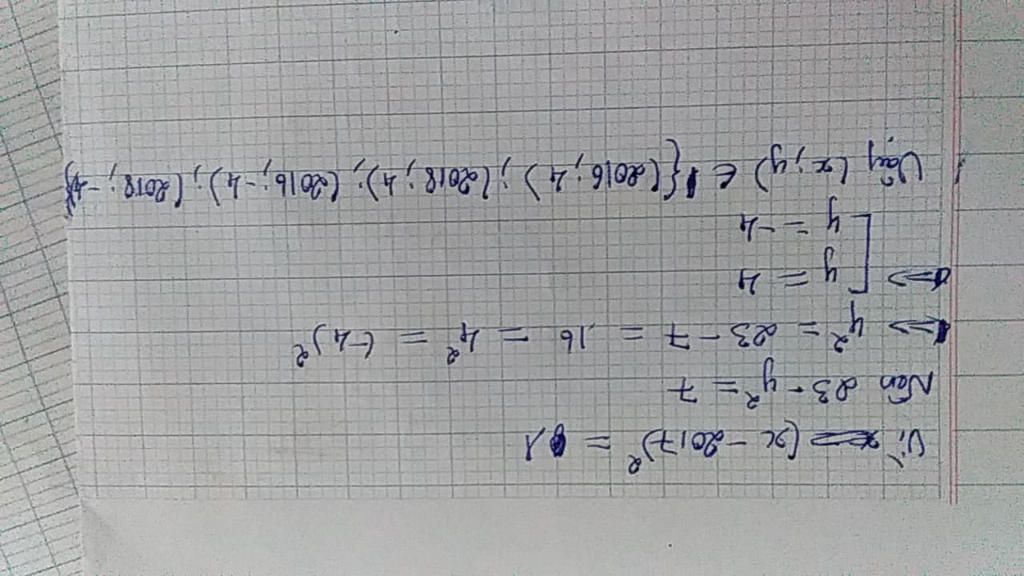 Vì (x - 2017)² = 1
Nên 23 - y² = 7
<=> y² = 23 - 7 = 16 = 4² = (-4)²
<=> [ y = 4
y = -4
Vậy (x; y) ∈ {(2016; 4); (2018; 4); (2016; -4); (2018; -4)}